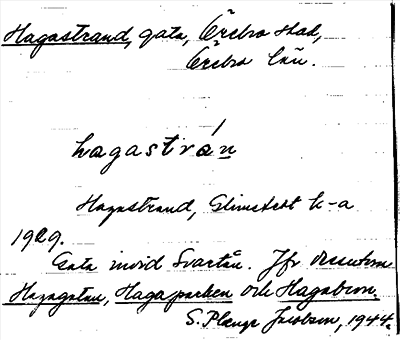 Hagastrand, gata, Örebro stad,
Örebro län.
hagastrán
Hagastrand, Elmstedt k-a
1929.
Gata invid Svartån. Jfr dessutom
Hagagatan, Hagaparken och Hagabron.
S. Plenge Jacobson, 1944.